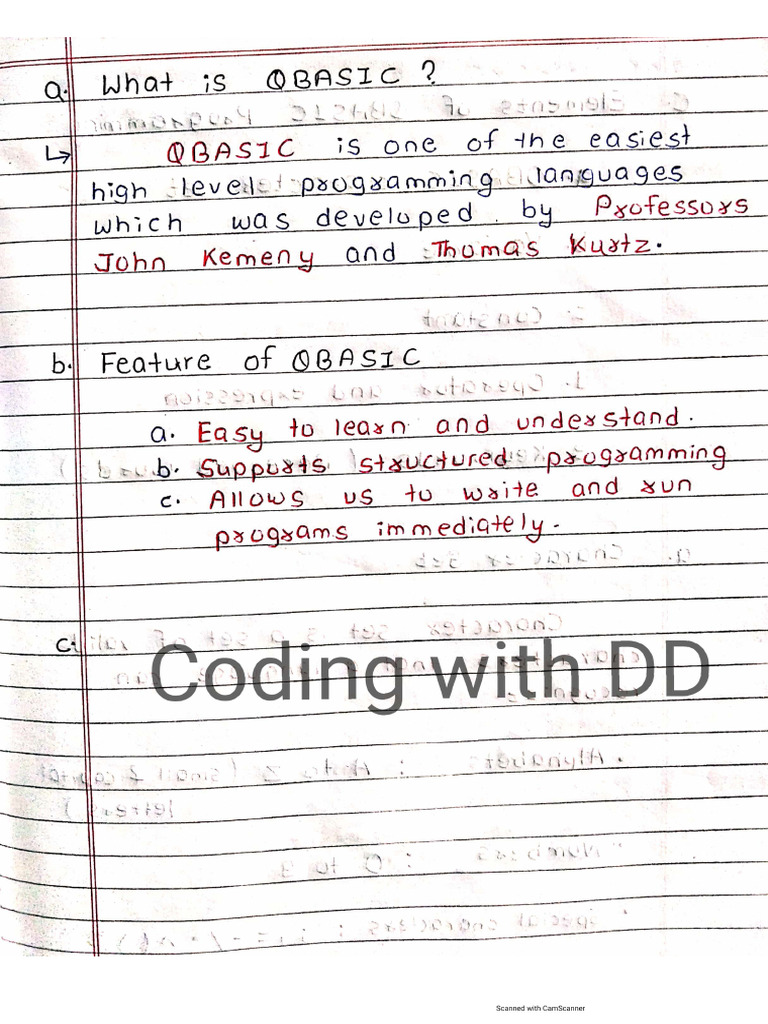 a. What is QBASIC ?
↳ QBASIC is one of the easiest
high level programming languages
which was developed by Professors
John Kemeny and Thomas Kurtz.
b. Feature of QBASIC
a. Easy to learn and understand.
b. Supports structured programming
c. Allows us to write and run
programs immediately.
c.
Coding with DD
Scanned with CamScanner